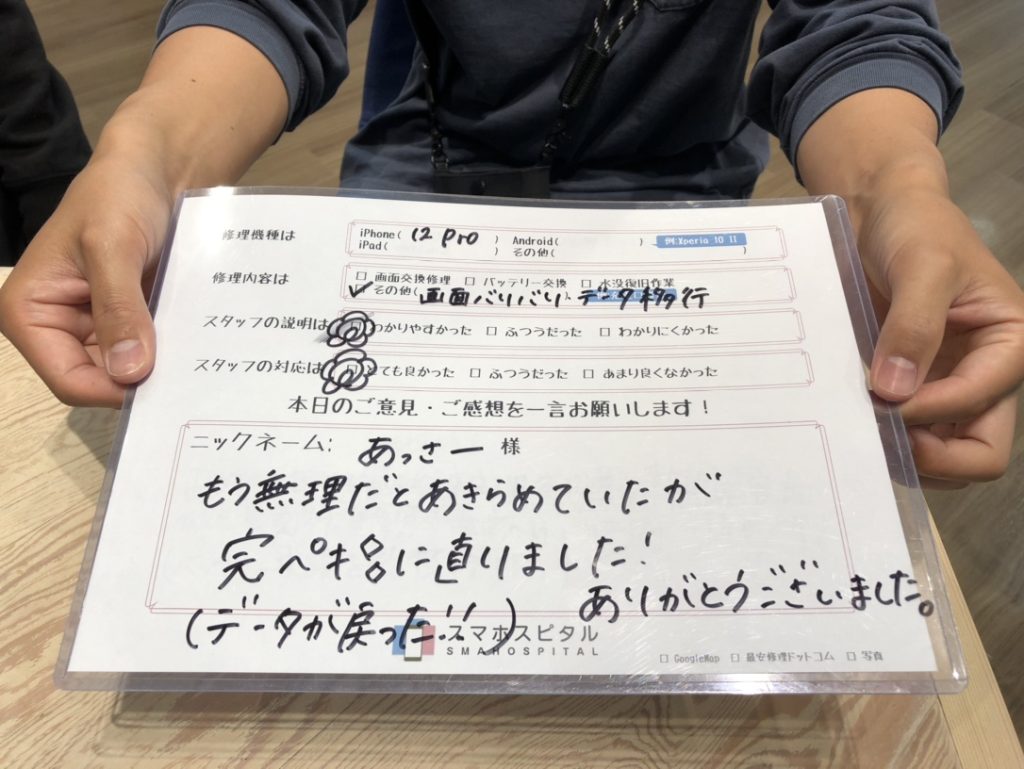 修理機種は
iPhone( 12 Pro ) Android( ) 例:Xperia 10 II
iPad( ) その他( )
修理内容は
□ 画面交換修理 □ バッテリー交換 □ 水没復旧作業
✓ その他( 画面バリバリ データ移行
スタッフの説明は □ わかりやすかった □ ふつうだった □ わかりにくかった
スタッフの対応は □ とても良かった □ ふつうだった □ あまり良くなかった
本日のご意見・ご感想を一言お願いします！
ニックネーム: あっさー 様
もう無理だとあきらめていたが
完ペキに直りました！
ありがとうございました。
(データが戻った!!)
スマホスピタル
SMAHOSPITAL
□ GoogleMap □ 最安修理ドットコム □ 写真